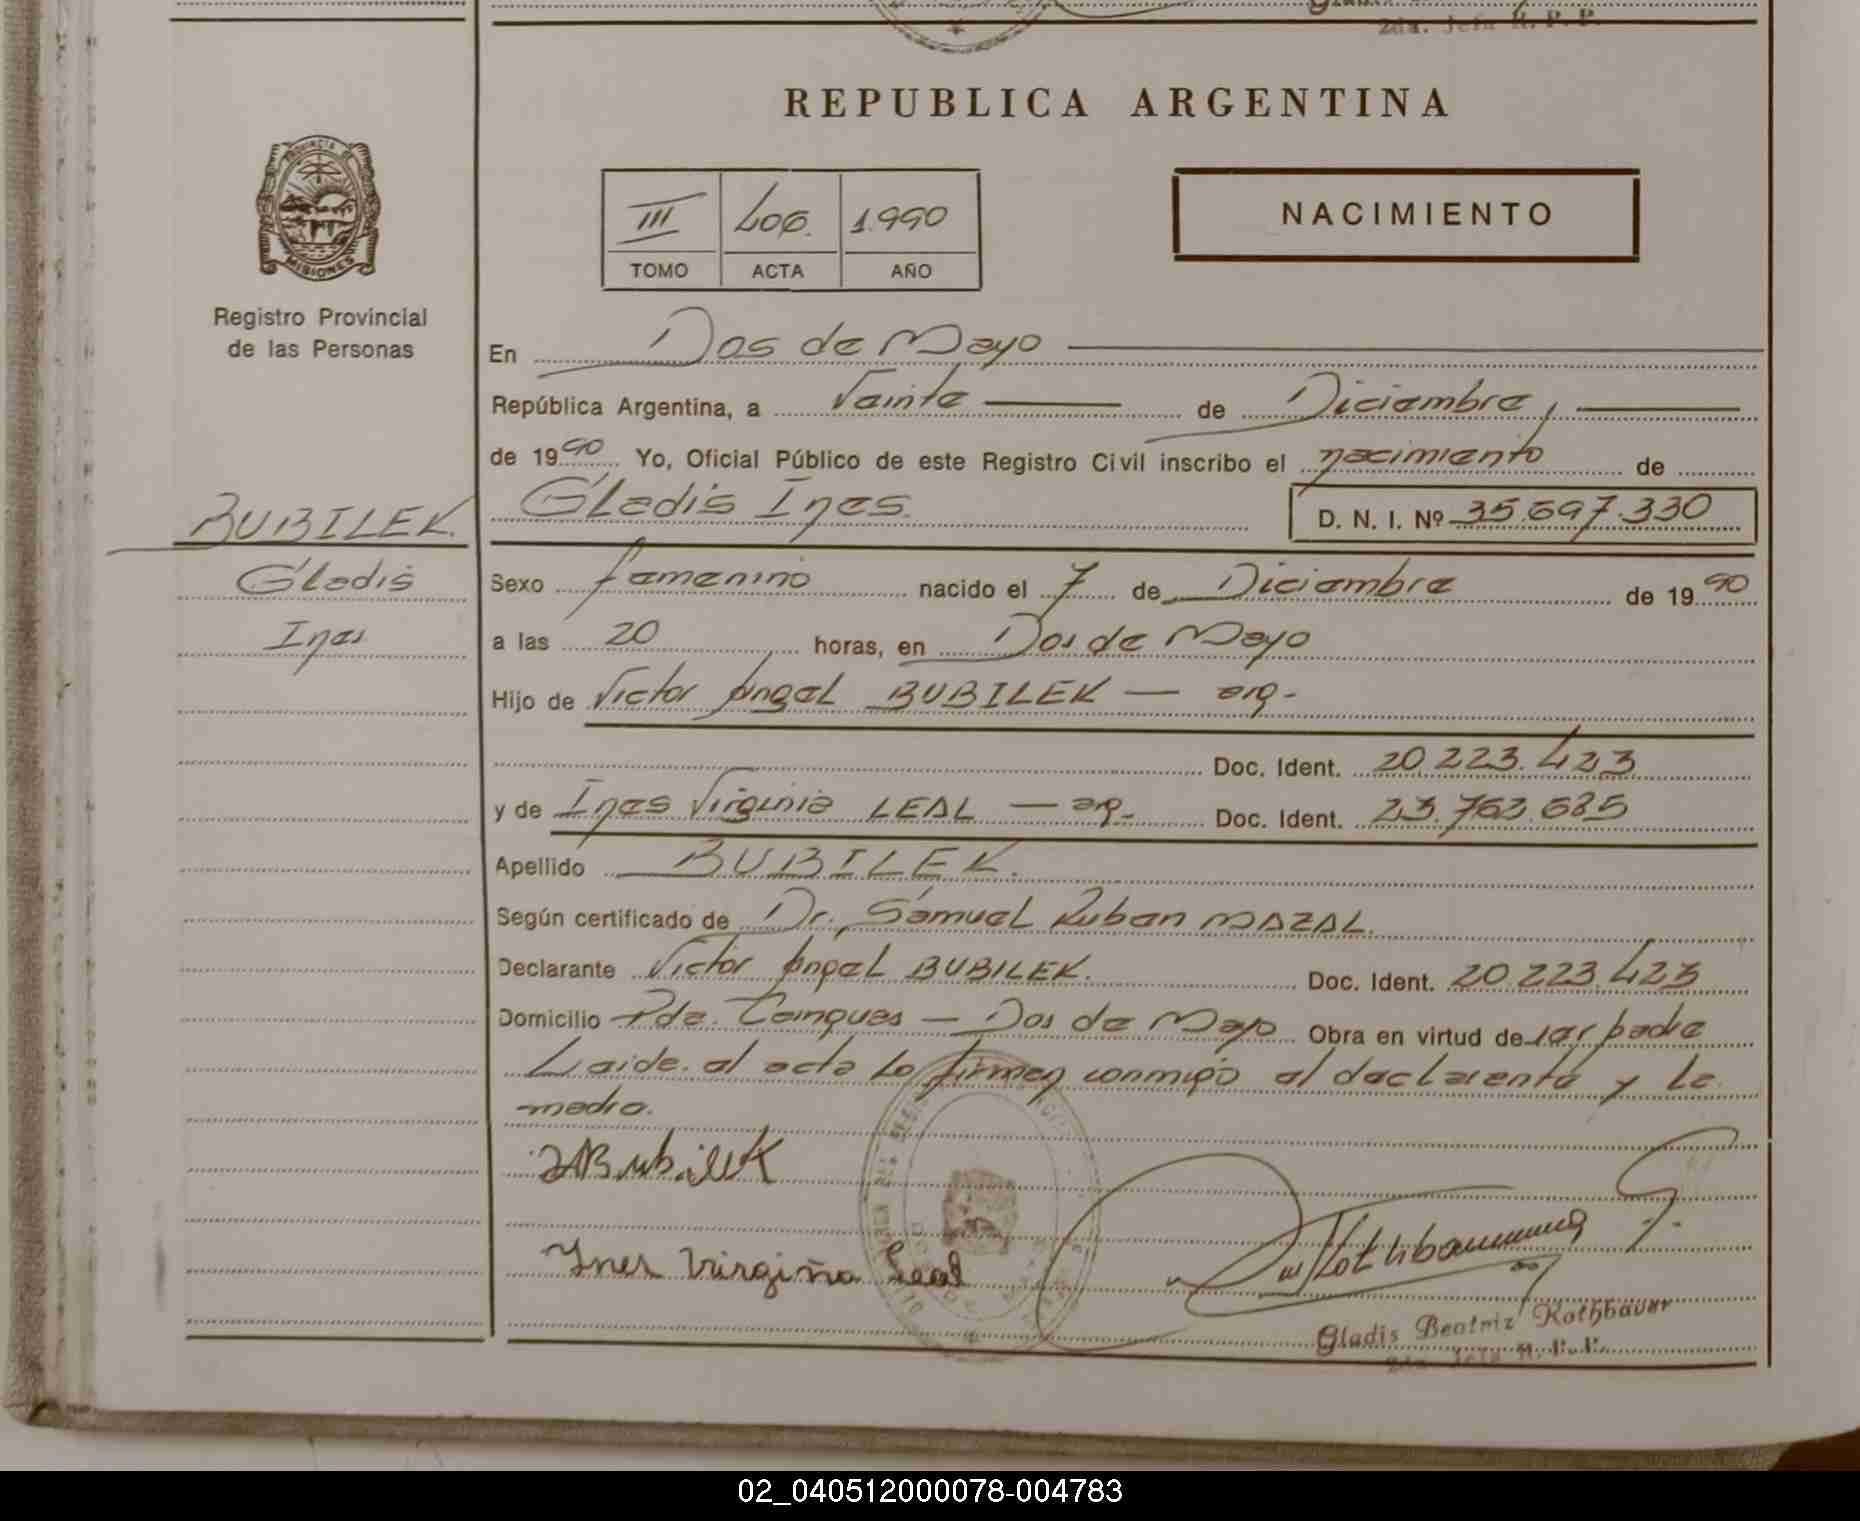 Gladis
2da. Jefa R. P. P.
REPUBLICA ARGENTINA
PROVINCIA DE
MISIONES
III 406. 1.990
TOMO ACTA AÑO
NACIMIENTO
Registro Provincial
de las Personas
En Dos de Mayo
República Argentina, a Veinte de Diciembre,
de 1990 Yo, Oficial Público de este Registro Civil inscribo el nacimiento de
BUBILEK.
Gladis Ines.
D. N. I. Nº 35.697.330
Gladis
Ines
Sexo femenino nacido el 7 de Diciembre de 1990
a las 20 horas, en Dos de Mayo
Hijo de Victor Angel BUBILEK — arg-
Doc. Ident. 20.223.423
y de Ines Virginia LEAL — ar- Doc. Ident. 23.763.685
Apellido BUBILEK.
Según certificado de Dr. Samuel Ruben MAZAL.
Declarante Victor Angel BUBILEK. Doc. Ident. 20.223.423
Domicilio Pde. Tamques — Dos de Mayo Obra en virtud de ser padre
Leida el acta la firman conmigo el declarante y la
madre.
Bubilek
Ines Virgiña Leal
Gladis Beatriz Rothbauer
2da. Jefa R. P. P.
02_040512000078-004783